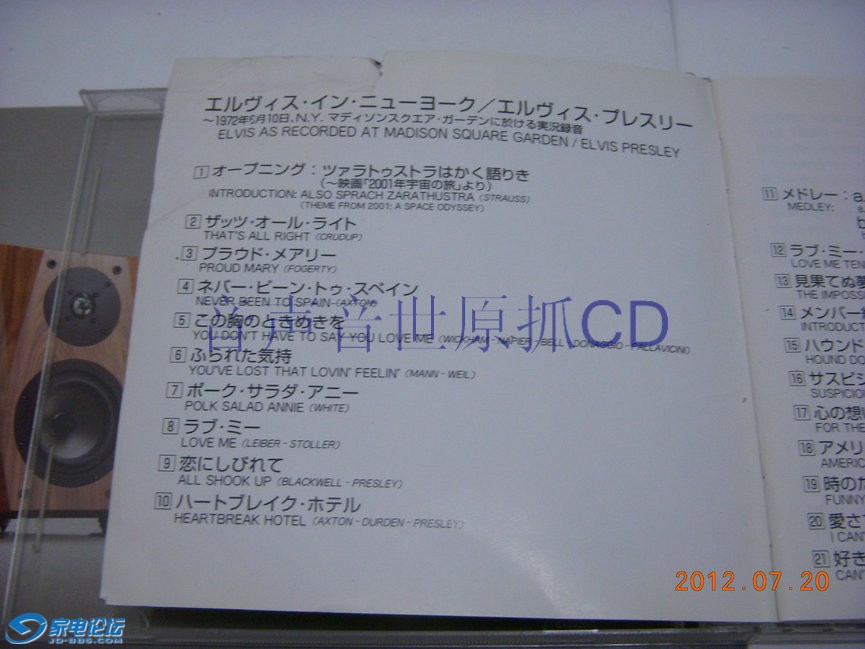 エルヴィス・イン・ニューヨーク／エルヴィス・プレスリー
〜1972年6月10日、N.Y. マディソンスクエア・ガーデンに於ける実況録音
ELVIS AS RECORDED AT MADISON SQUARE GARDEN / ELVIS PRESLEY
1 オープニング：ツァラトゥストラはかく語りき
(〜映画「2001年宇宙の旅」より)
INTRODUCTION: ALSO SPRACH ZARATHUSTRA (STRAUSS)
(THEME FROM 2001: A SPACE ODYSSEY)
2 ザッツ・オール・ライト
THAT'S ALL RIGHT (CRUDUP)
3 プラウド・メアリー
PROUD MARY (FOGERTY)
4 ネバー・ビーン・トゥ・スペイン
NEVER BEEN TO SPAIN (AXTON)
5 この胸のときめきを
YOU DON'T HAVE TO SAY YOU LOVE ME (WICKHAM - NAPIER - BELL - DONAGGIO - PALLAVICINI)
6 ふられた気持
YOU'VE LOST THAT LOVIN' FEELIN' (MANN - WEIL)
7 ポーク・サラダ・アニー
POLK SALAD ANNIE (WHITE)
8 ラブ・ミー
LOVE ME (LEIBER - STOLLER)
9 恋にしびれて
ALL SHOOK UP (BLACKWELL - PRESLEY)
10 ハートブレイク・ホテル
HEARTBREAK HOTEL (AXTON - DURDEN - PRESLEY)
11 メドレー：a.
MEDLEY: a.
12 ラブ・ミー・
LOVE ME TEN
13 見果てぬ夢
THE IMPOSS
14 メンバー紹
INTRODUCT
15 ハウンド
HOUND DO
16 サスピシ
SUSPICIO
17 心の想い
FOR THE
18 アメリ
AMERIC
19 時のた
FUNNY
20 愛さ
I CAN'
21 好き
CAN'T
声音世原抓CD
2012.07.20
家电论坛
JD-BBS.COM